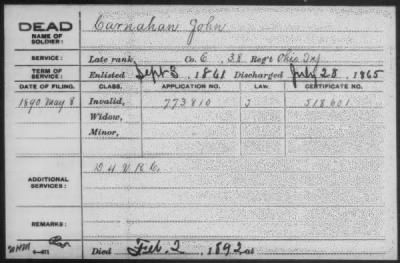 DEAD
NAME OF SOLDIER: Carnahan John
SERVICE: Late rank, Co. E, 38 Reg't Ohio Inf
TERM OF SERVICE: Enlisted Sept 3, 1861 Discharged July 28, 1865
DATE OF FILING. CLASS. APPLICATION NO. LAW. CERTIFICATE NO.
1890 May 8 Invalid, 773810 J 518601
Widow,
Minor,
ADDITIONAL SERVICES: D H V R C.
REMARKS:
Died Feb. 2, 1892 at